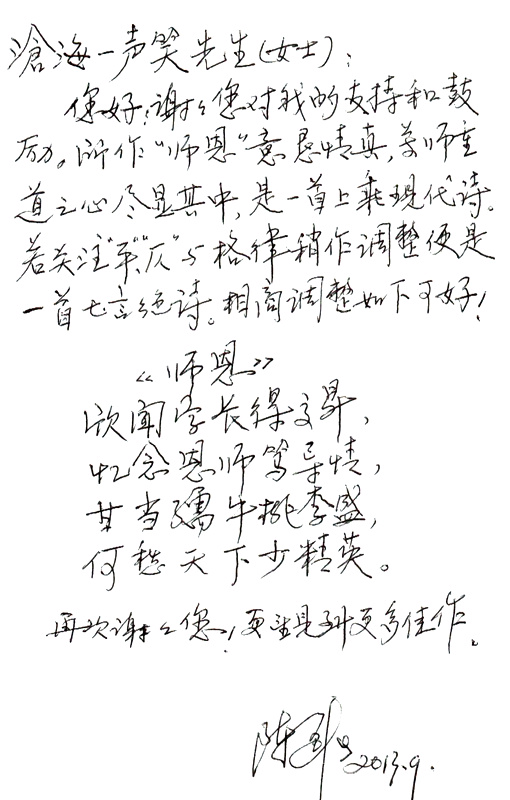 滄海一声笑先生(女士):
您好!谢谢您对我的支持和鼓
励。所作“师恩”意恳情真,尊师重
道之心尽显其中,是一首上乘现代诗。
若关注“平”“仄”与格律稍作调整便是
一首七言绝诗。相商调整如下可好!
《师恩》
欣闻学长得文昇,
忆念恩师笃导情,
甘当孺牛桃李盛,
何愁天下少精英。
再次谢谢您!更望见到更多佳作。
陈 2013.9.